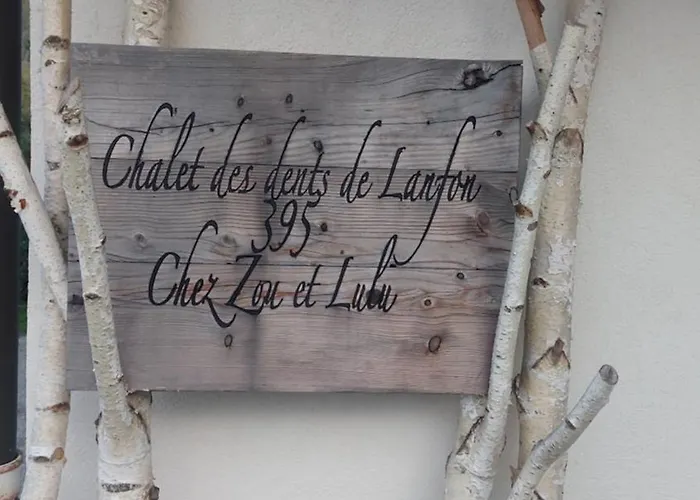 Chalet des dents de Lanfon
395
Chez Zou et Lulu